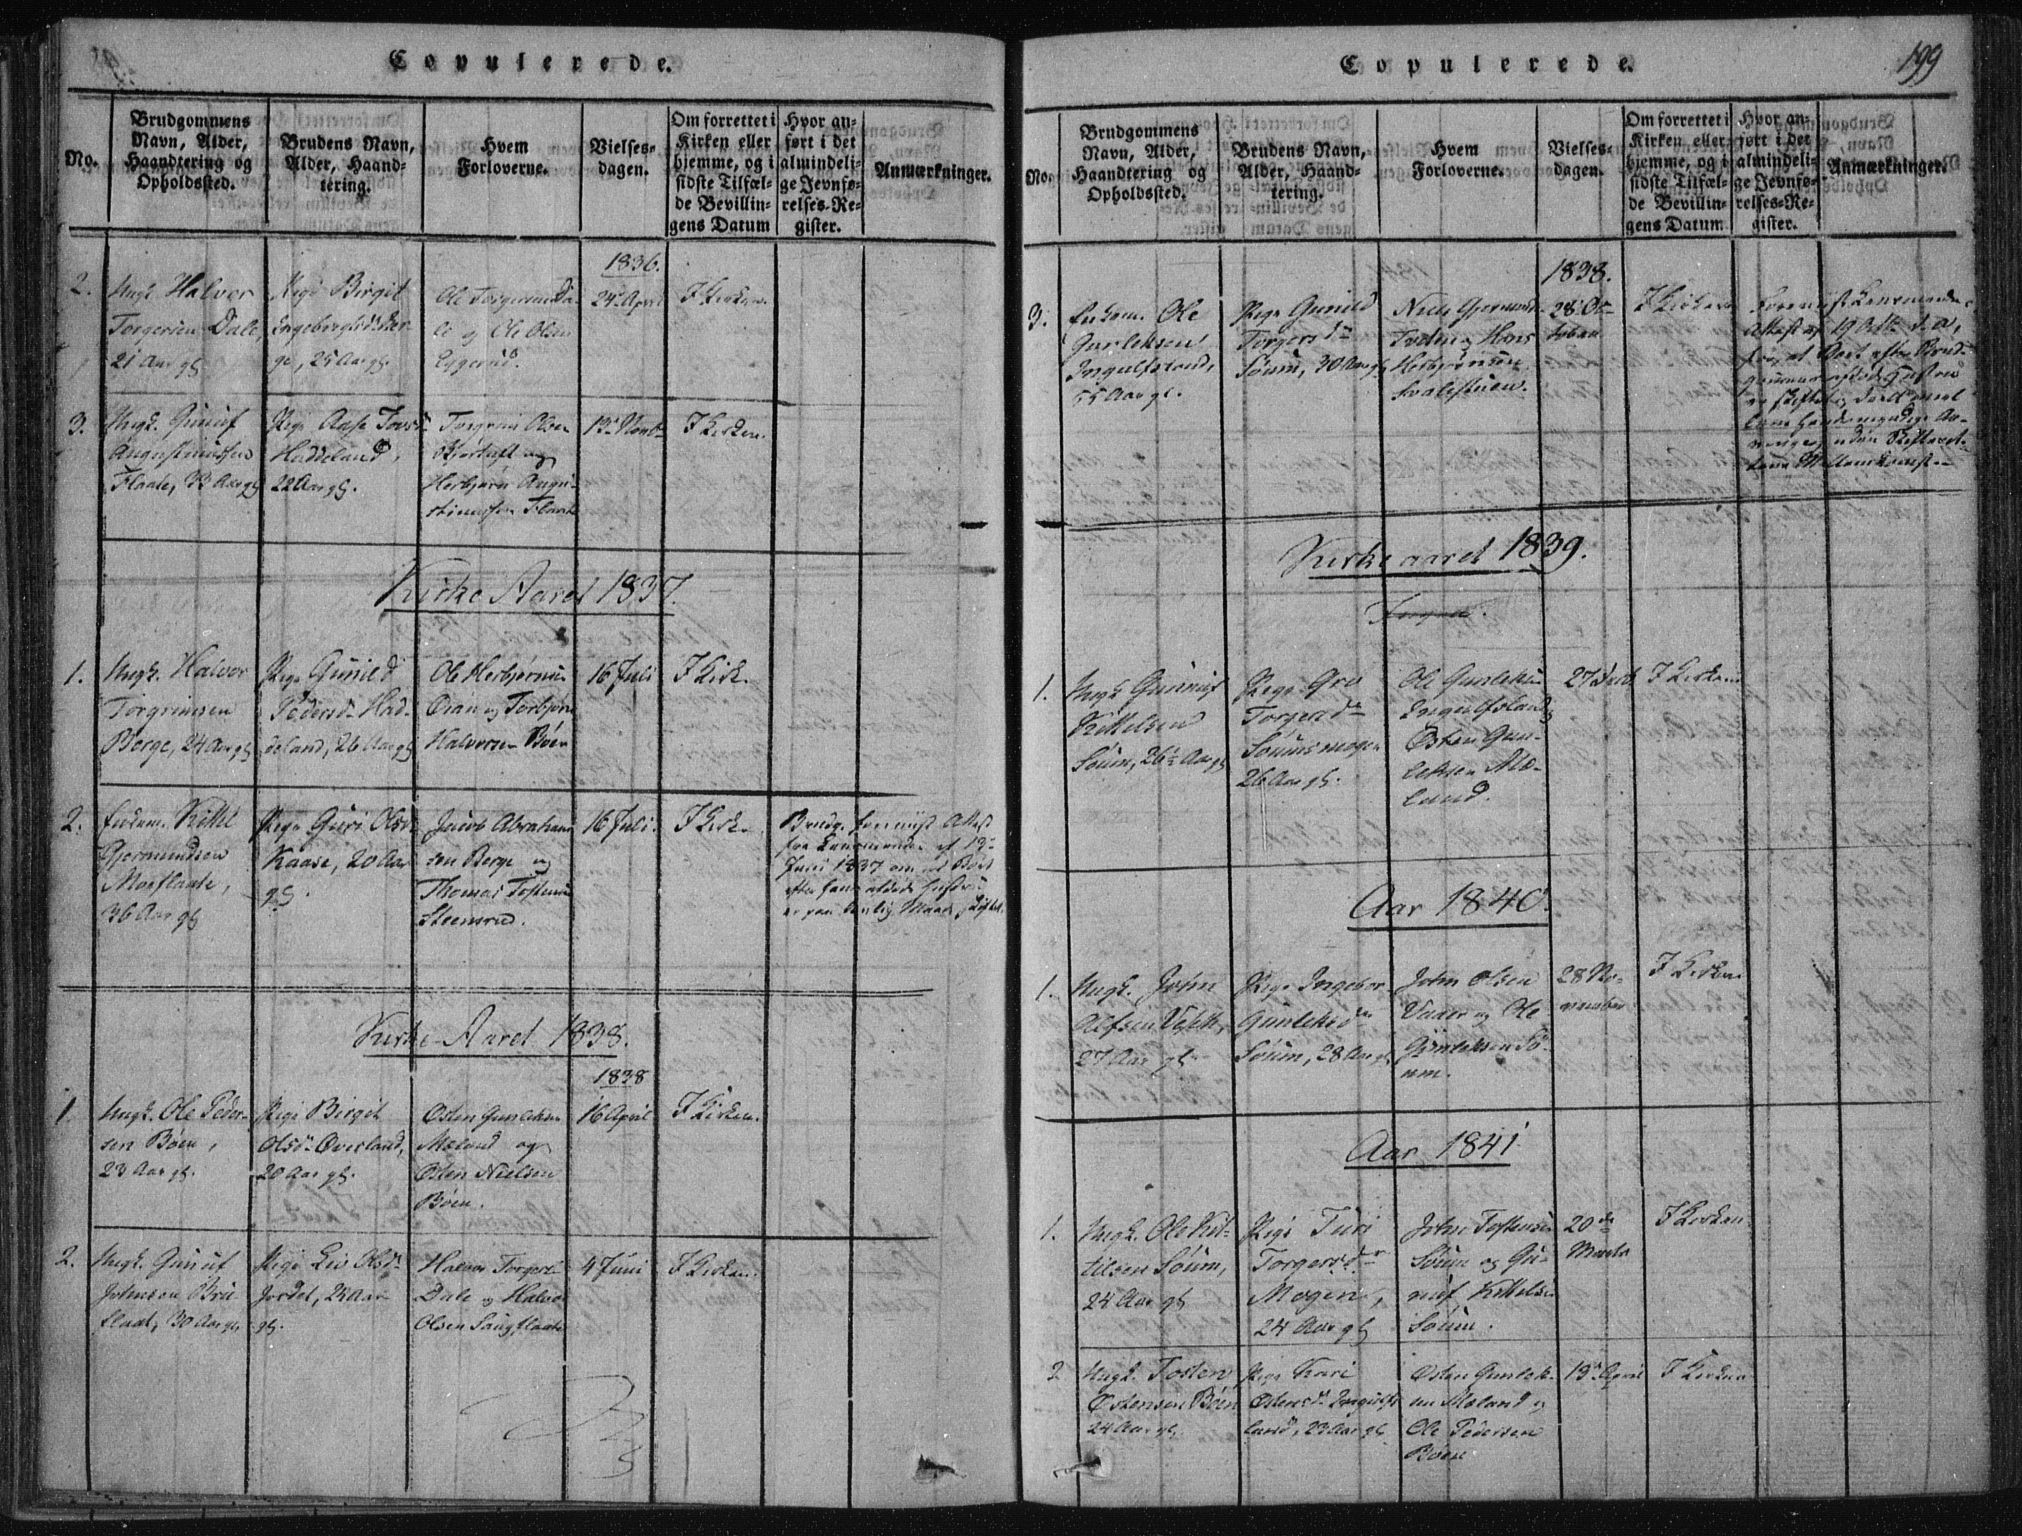 Copulerede.
No.
Brudgommens
Navn, Alder,
Haandtering og
Opholdssted.
Brudens Navn,
Alder, Haand-
tering.
Hvem
Forloverne.
Vielses-
dagen.
Om forrettet i
Kirken eller
hjemme, og i
sidste Tilfæl-
de Bevillin-
gens Datum
Hvor an-
ført i det
almindeli-
ge Jevnfø-
relses-Re-
gister.
Anmærkninger.
1836.
2.
Ungk. Halvor
Torgersen Dale,
21 Aar gl
Pige Birgit
25 Aar gl.
Ole Torgersen Da-
le og Ole Olsen
Eggerud.
24 April
I Kirken.
3.
Ungk. Gunuf
Augustinussen
Flaate, 33 Aar gl
Pige Aase Tovsd
Haddeland,
22 Aar gl.
Torgrim Olsen
og
Herbjørn Augu-
stinussen Flaate
13 Novb
I Kirken.
Kirke Aaret 1837.
1.
Ungk. Halvor
Torgrimsen
Berge, 24 Aar gl
Pige Gunild
Pedersd Had-
deland, 26 Aar gl
Ole Herbjørnsen
Oran og Torbjørn
Halvorsen Bøen
16 Juli
I Kirk.
2.
Enkem. Kittil
Gjermundsen
Morflaate,
36 Aar gl
Pige Guri Olsd
Kaase, 20 Aar
gl.
Jacob Abraham
sen Berge og
Thomas Tostensen
Steensrud.
16 Juli.
I Kirken
Brudg. foreviist Attest
fra Lensmanden af 13
Juni 1837 om at Boet
efter hans
Kirke-Aaret 1838.
1838
1.
Ungk. Ole Peder-
sen Bøen,
23 Aar gl.
Pige Birgit
Olsd Øverland,
20 Aar gl.
Østen Gunleksen
Mæland og
Østen Nielsen
Bøen.
16 April
I Kirken.
2.
Ungk. Gunuf
Johnsen Bru
flaat, 30 Aar gl.
Pige Liv Olsd
Jordet, 24 Aar
gl.
Halvor Torgers
Dale og Halvor
Olsen Haugflaate
4 Juni
I Kirken.
Copulerede.
199
No.
Brudgommens
Navn, Alder,
Haandtering og
Opholdssted.
Brudens Navn,
Alder, Haand-
tering.
Hvem
Forloverne.
Vielses-
dagen.
Om forrettet i
Kirken eller
hjemme, og i
sidste Tilfæl-
de Bevillin-
gens Datum.
Hvor an-
ført i det
almindeli-
ge Jevnfø-
relses-Re-
gister.
Anmærkninger.
1838.
3.
Enkem. Ole
Gunleksen
Ingulfsland,
55 Aar gl.
Pige Gunild
Torgersd
Søum, 30 Aar gl
Niels Gjermunds
og Hans
Herbjørnsen
Svalestuen.
28 Oc-
tober
I Kirken
Foreviist Lensmandens
Attest af 19 Octb. d. A,
for, at Boet efter Brud-
gommens
Kirkeaaret 1839.
1.
Ungk. Gunuf
Kittelsen
Søum, 26½ Aar gl
Pige Gro
Torgersd
Søumsmogen
26 Aar gl.
Ole Gunleksen
Ingulfsland og
Østen Gun-
leksen Mæ-
land.
27
I Kirken
Aar 1840.
1.
Ungk. John
Alfsen
27 Aar gl
Pige Ingebor
Gunleksd
Søum, 28 Aar gl
John Olsen
Vaaer og Ole
Gunleksen Sø-
um.
28 No-
vember
I Kirken
Aar 1841
1.
Ungk. Ole Kit-
tilsen Søum,
24 Aar gl
Pige Turi
Torgersd
Mogen,
24 Aar gl
John Tostensen
Søum og Gu-
nuf Kittelsen
Søum.
20de
Marts
I Kirken
2
Ungk. Tosten
Østensen Bøen
24 Aar gl
Pige Kari
Østensd Ingulfs
land, 23 Aar gl
Østen Gunlek-
sen Mæland og
Ole Pedersen
Bøen
13 April
I Kirken